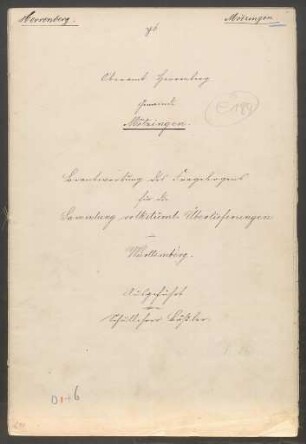 Herrenberg.
Mötzingen
Oberamt Herrenberg
Gemeinde
Mötzingen.
Beantwortung des Fragebogens
für die
Sammlung volkstüml. Überlieferungen
in
Württemberg.
Ausgeführt
von
Schullehrer